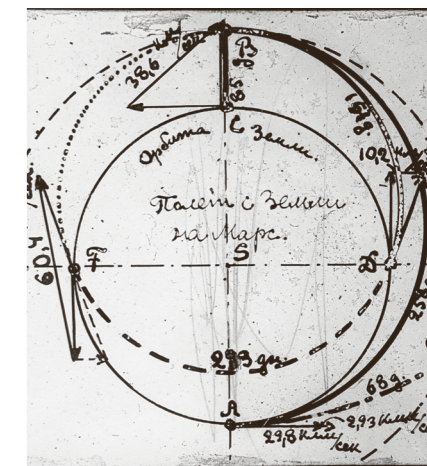 38,6
B
C
Орбита Земли.
10,2
Полет с Земли
на Марс.
60,4
F
S
D
293 дн.
A
68 д.
2,93 клм/сек
29,8 клм/сек